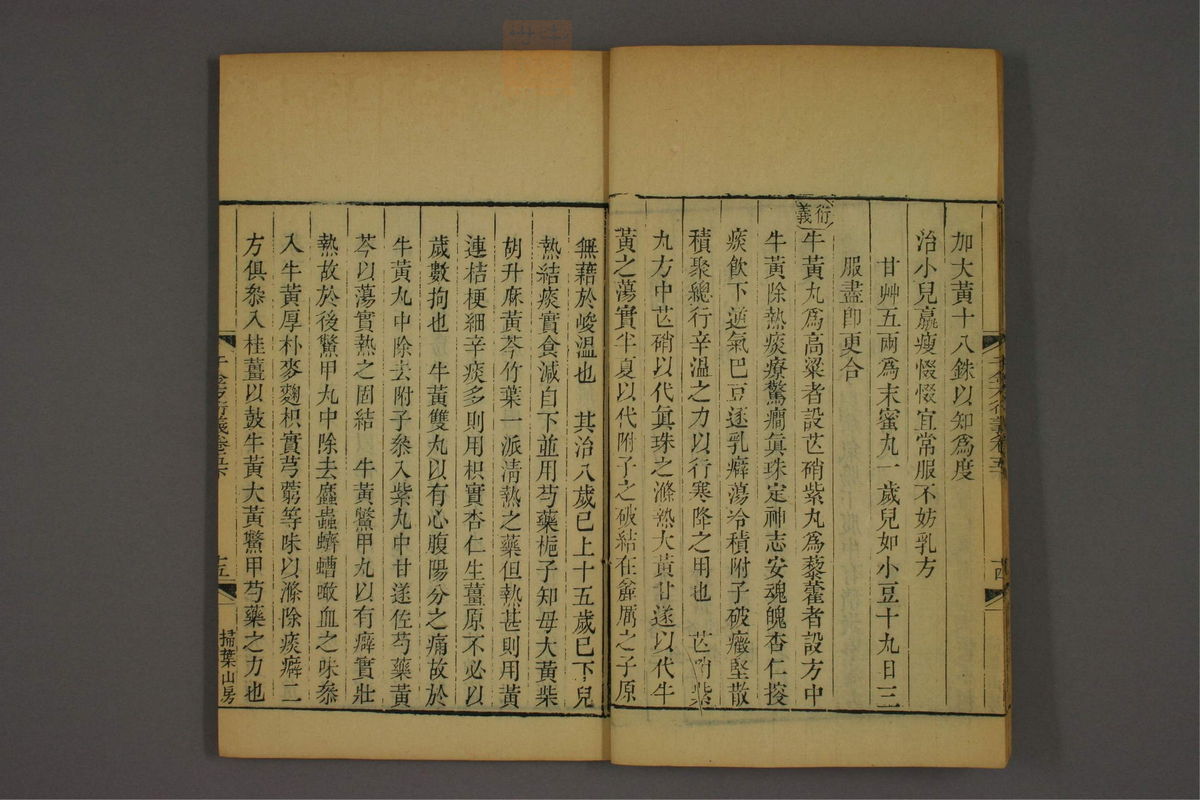 加大黃十八銖以知爲度
治小兒羸瘦惙惙宜常服不妨乳方
甘艸五兩爲末蜜丸一歲兒如小豆十九日三
服盡卽更合
衍義
牛黃丸爲高粱者設芒硝紫丸爲藜藿者設方中
牛黃除熱痰療驚癎眞珠定神志安魂魄杏仁搜
痰飮下逆氣巴豆逐乳癖蕩冷積附子破癥堅散
積聚總行辛溫之力以行寒降之用也　芒硝紫
丸方中芒硝以代眞珠之滌熱大黃甘遂以代牛
黃之蕩實半夏以代附子之破結在辭厲之子原
千金方衍義卷五
十四
無藉於峻溫也　其治八歲已上十五歲已下兒
熱結痰實食減自下並用芍藥梔子知母大黃柴
胡升麻黃芩竹葉一派淸熱之藥但熱甚則用黃
連桔梗細辛痰多則用枳實杏仁生薑原不必以
歲數拘也　牛黃雙丸以有心腹陽分之痛故於
牛黃丸中除去附子叅入紫丸中甘遂佐芍藥黃
芩以蕩實熱之固結　牛黃鱉甲丸以有癖實壯
熱故於後鱉甲丸中除去䗪蟲蠐螬噉血之味叅
入牛黃厚朴麥麴枳實芎藭等味以滌除痰癖二
方俱叅入桂薑以鼓牛黃大黃鱉甲芍藥之力也
千金方衍義卷五
十五
掃葉山房